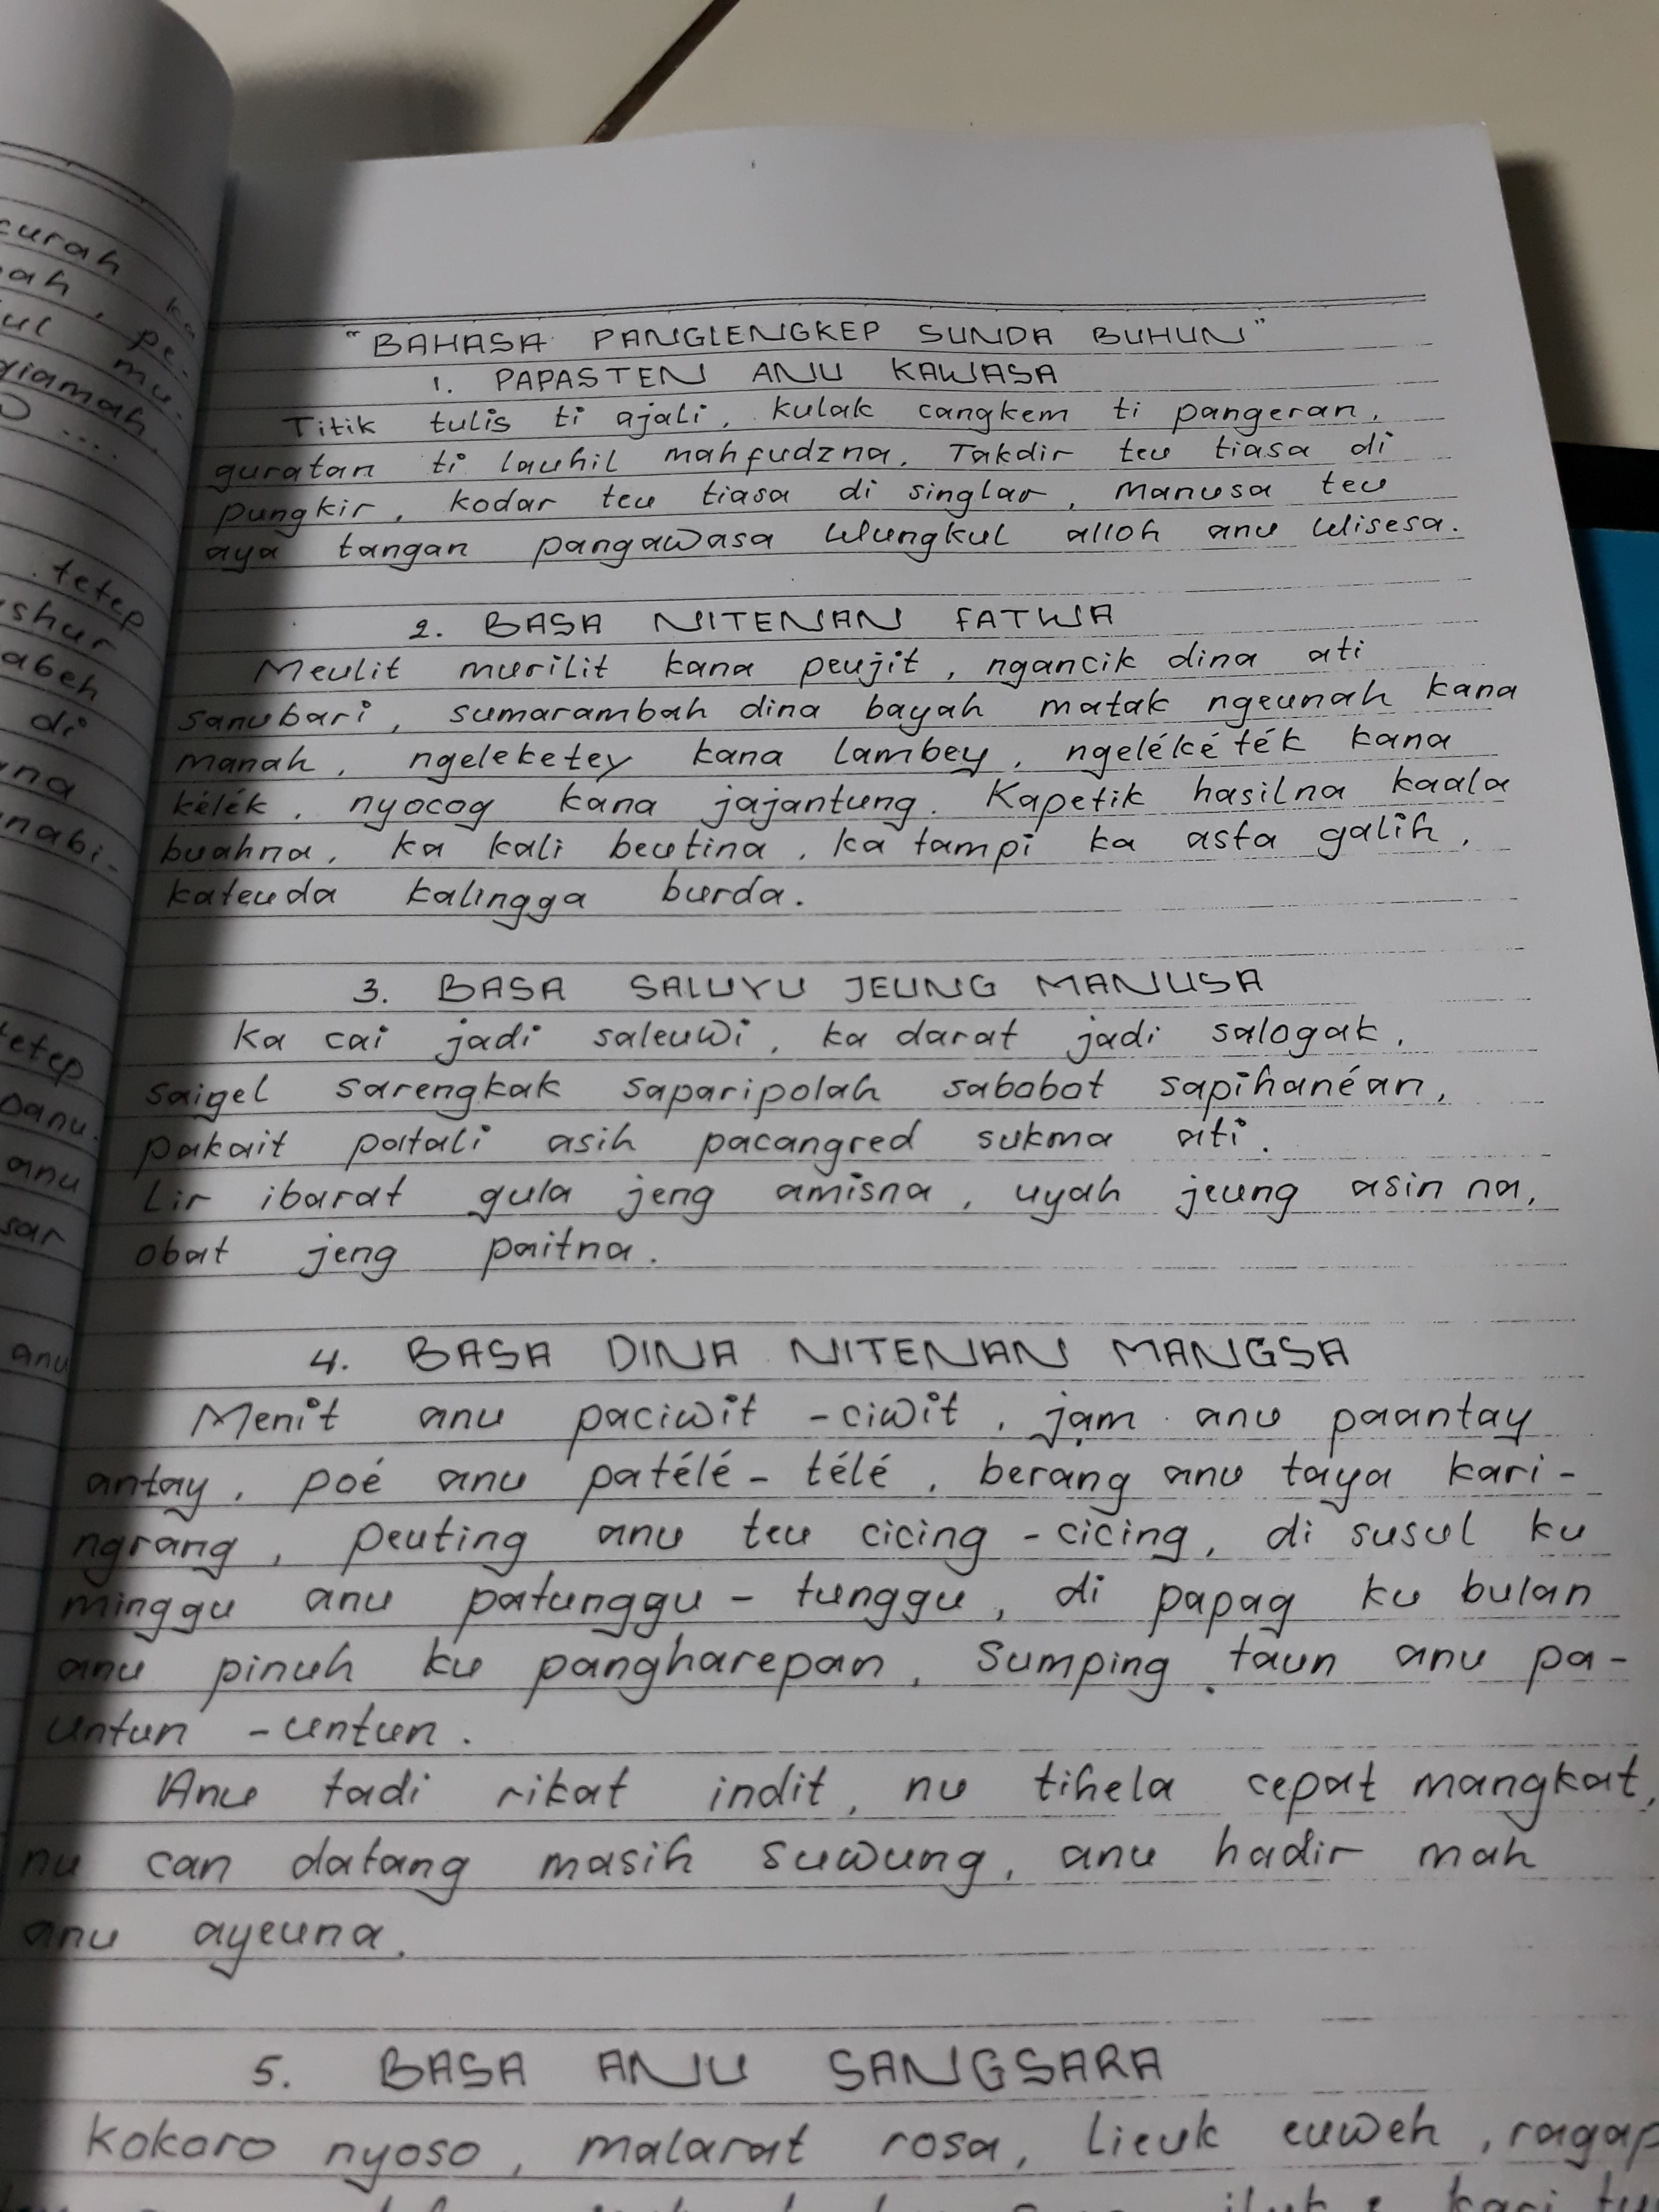 curah
ka
ah, pe-
ul mu-
qiamah
...
. tetep
shur
abeh
di
na
nabi-
tetep
anu
sar
anu
"BAHASA PANGLENGKEP SUNDA BUHUN"
1. PAPASTEN ANU KAWASA
Titik tulis ti ajali, kulak cangkem ti pangeran,
guratan ti lauhil mahfudzna. Takdir teu tiasa di
pungkir, kodar teu tiasa di singlar, manusa teu
aya tangan pangawasa wungkul alloh anu wisesa.
2. BASA NITENAN FATWA
Meulit murilit kana peujit, ngancik dina ati
sanubari, sumarambah dina bayah matak ngeunah kana
manah, ngeleketey kana lambey, ngelékéték kana
kélék, nyocog kana jajantung. Kapetik hasilna kaala
buahna, ka kali beutina, ka tampi ka asta galih,
kateuda kalingga burda.
3. BASA SALUYU JEUNG MANUSA
Ka cai jadi saleuwi, ka darat jadi salogak,
saigel sarengkak saparipolah sabobot sapihanéan,
pakait patali asih pacangred sukma ati.
Lir ibarat gula jeng amisna, uyah jeung asin na,
obat jeng paitna.
4. BASA DINA NITENAN MANGSA
Menit anu paciwit -ciwit, jam anu paantay
antay, poé anu patélé - télé, berang anu taya kari-
ngrang, peuting anu teu cicing -cicing, di susul ku
minggu anu patunggu - tunggu, di papag ku bulan
anu pinuh ku pangharepan, Sumping taun anu pa-
untun -untun.
Anu tadi rikat indit, nu tihela cepat mangkat,
nu can datang masih suwung, anu hadir mah
anu ayeuna.
5. BASA ANU SANGSARA
Kokoro nyoso, malarat rosa, lieuk euweh, ragap